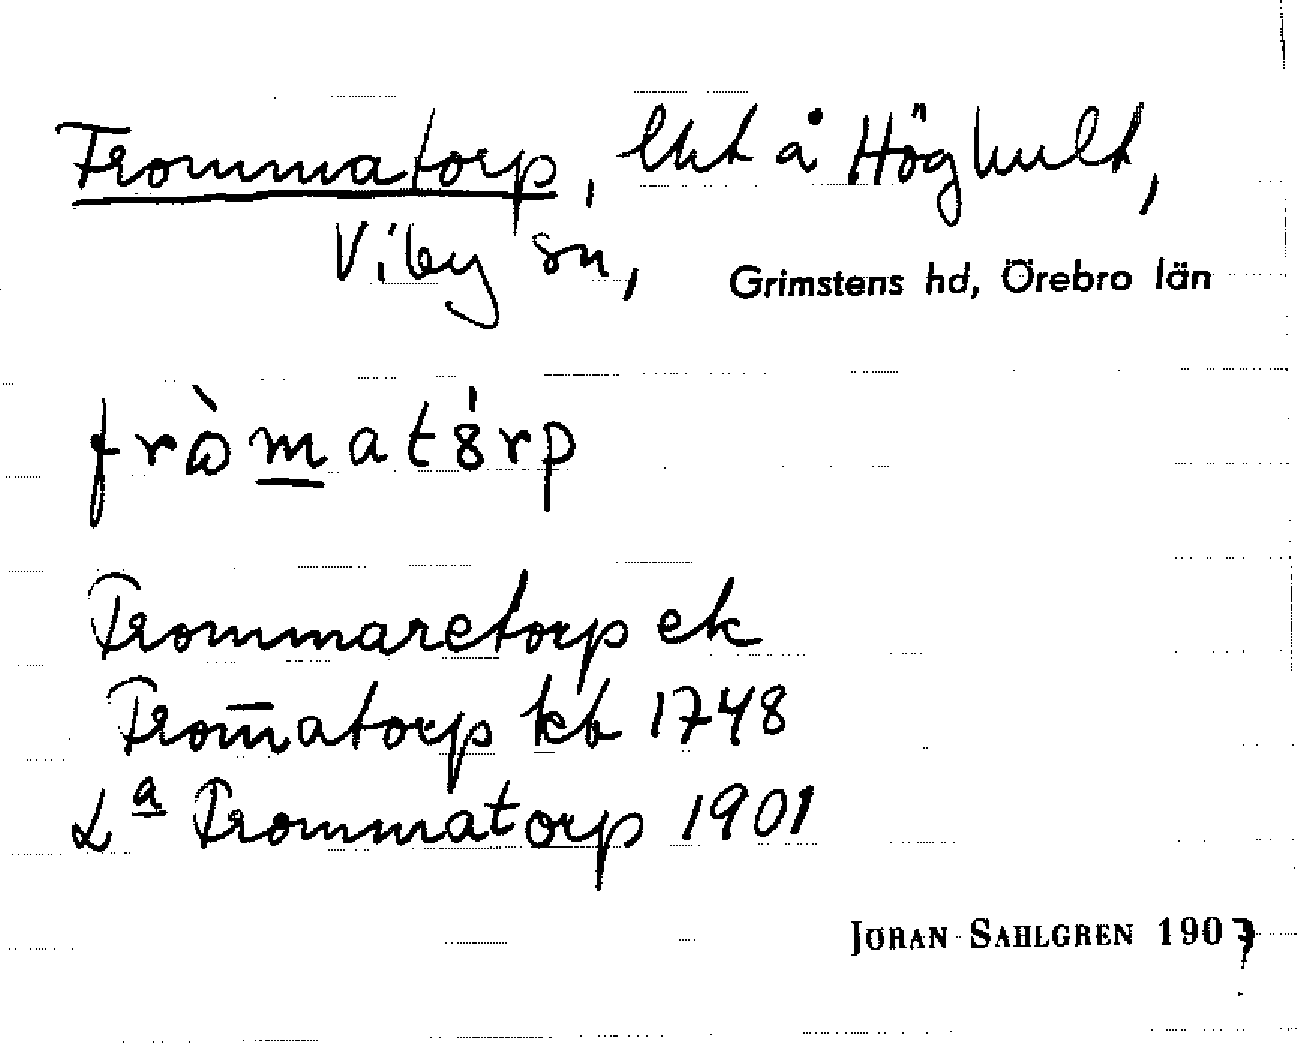 Frommatorp, lht å Höghult,
Viby sn, Grimstens hd, Örebro län
fròmatórp
Frommaretorp ek
From̄atorp kb 1748
La Frommatorp 1901
JÖRAN SAHLGREN 1907